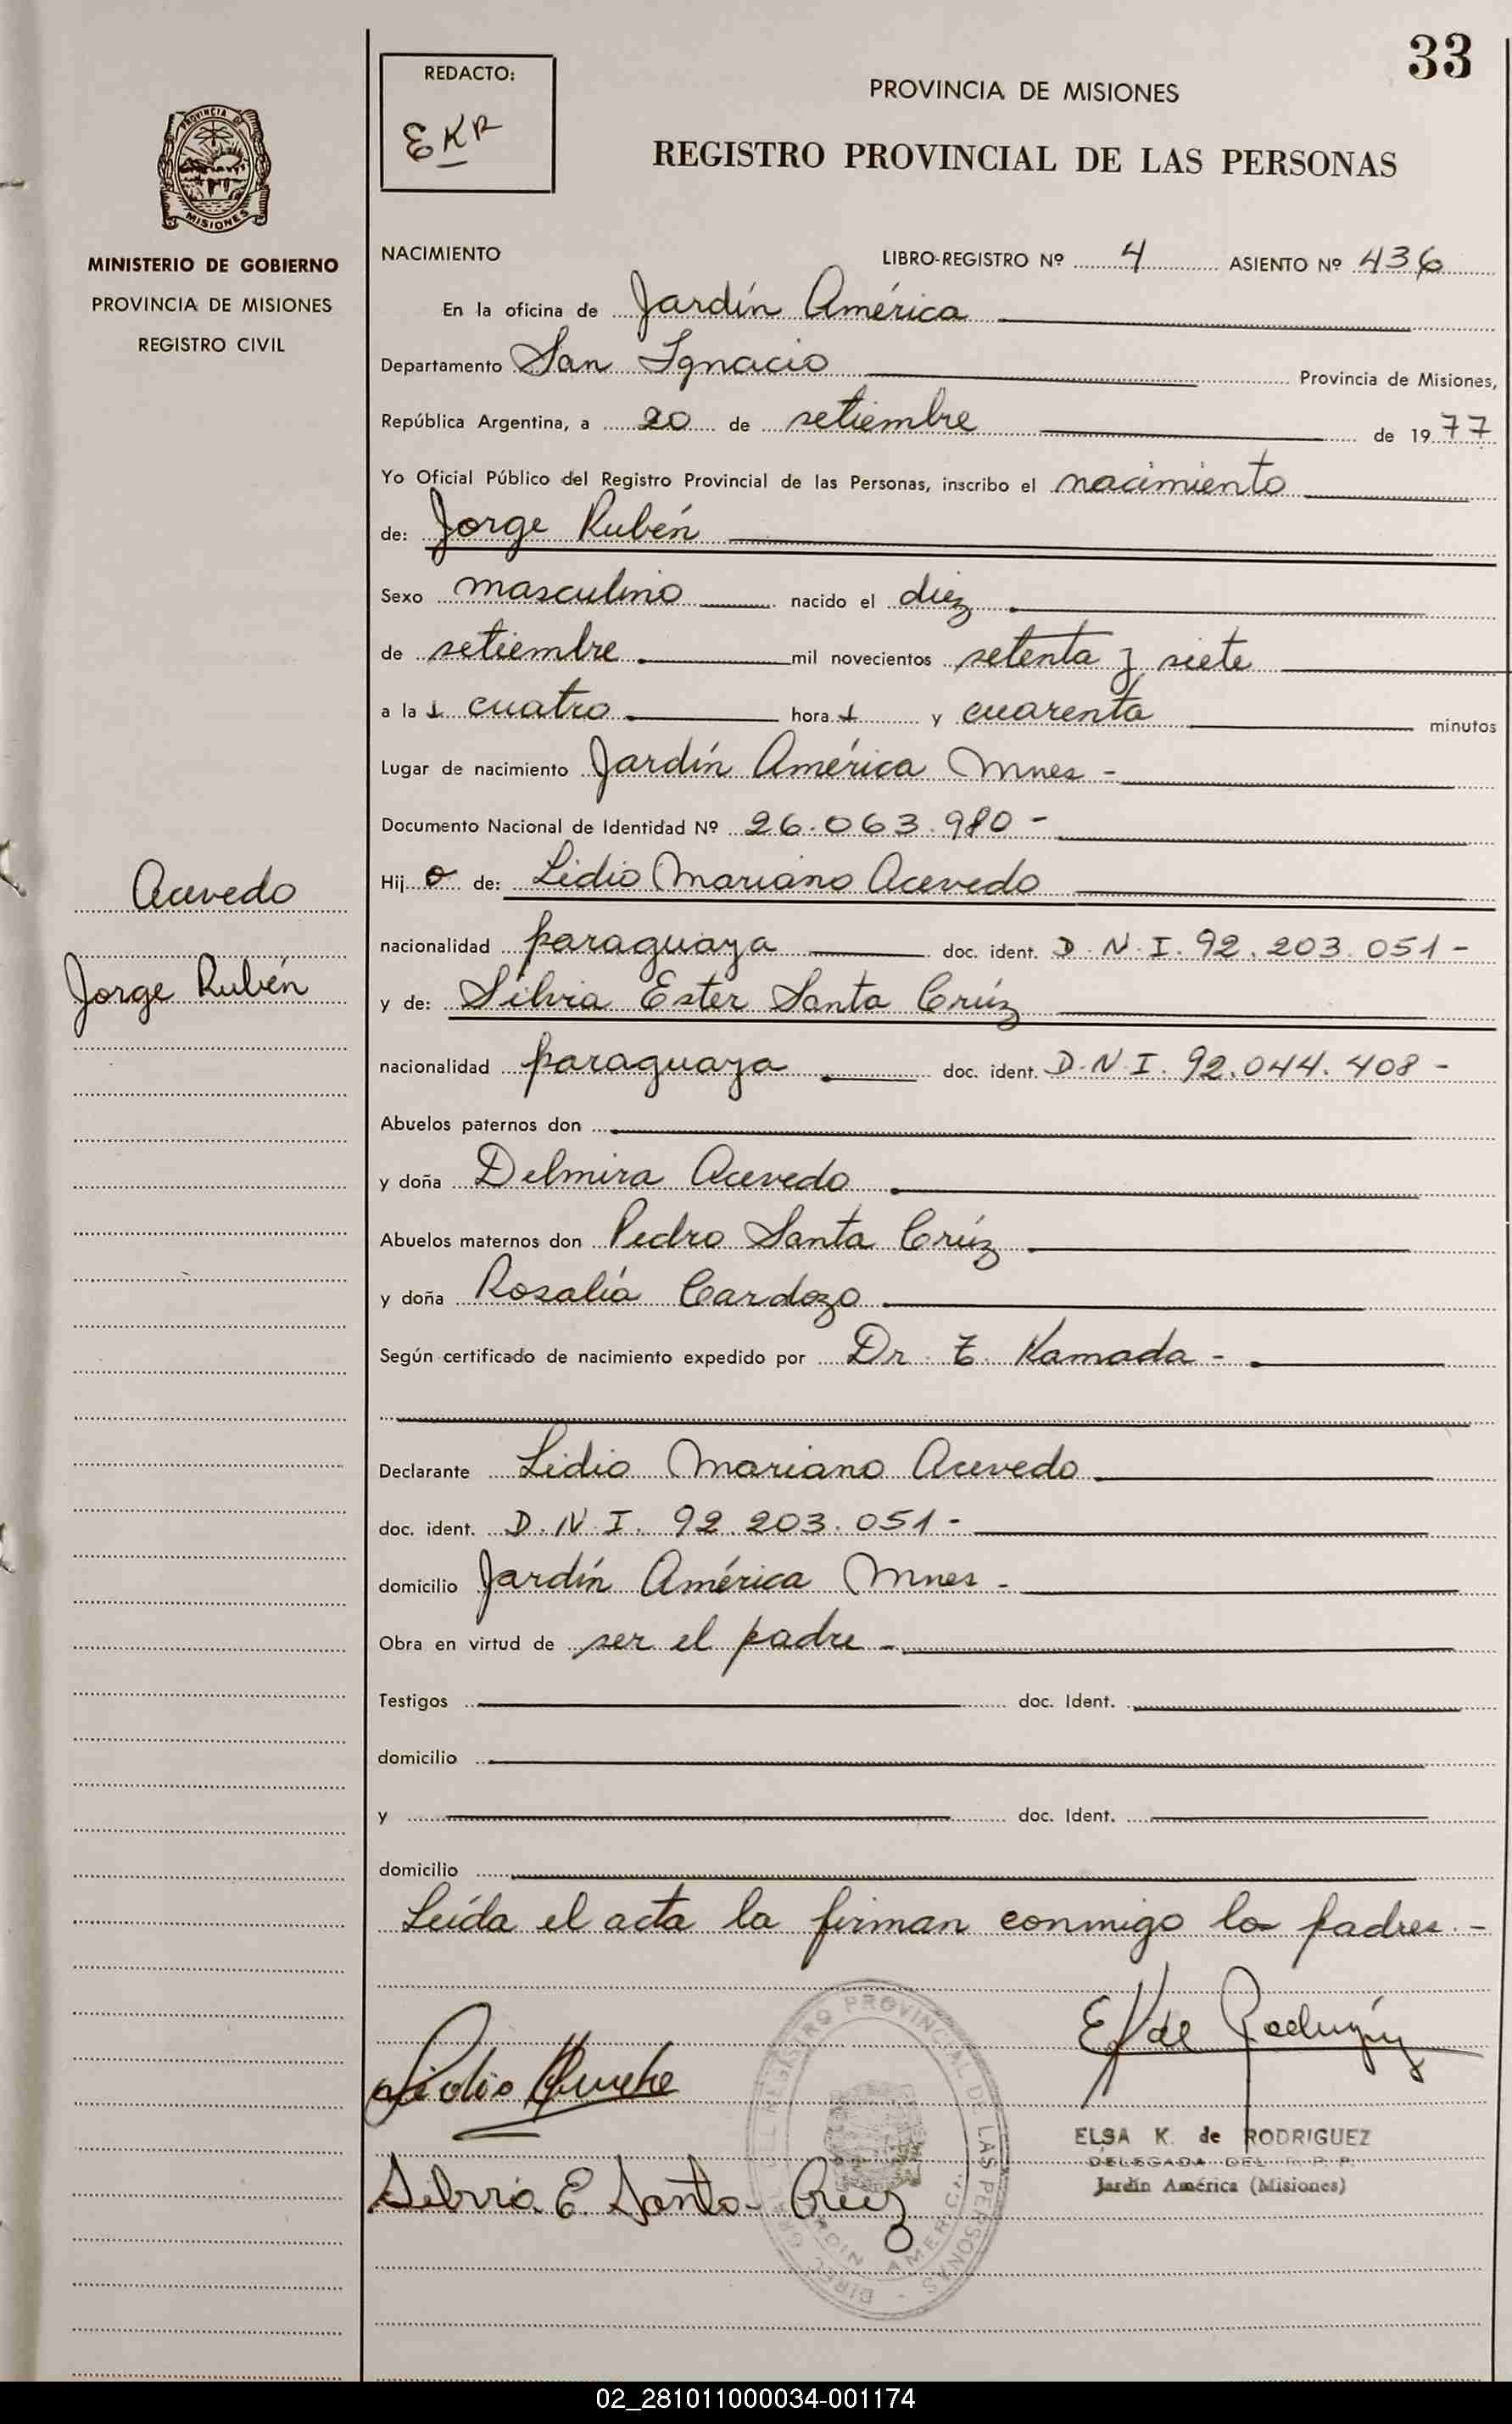 33
REDACTO:
EKR
PROVINCIA DE MISIONES
REGISTRO PROVINCIAL DE LAS PERSONAS
PROVINCIA DE
MISIONES
MINISTERIO DE GOBIERNO
PROVINCIA DE MISIONES
REGISTRO CIVIL
NACIMIENTO LIBRO-REGISTRO Nº 4 ASIENTO Nº 436
En la oficina de Jardín América
Departamento San Ignacio Provincia de Misiones,
República Argentina, a 20 de setiembre de 1977
Yo Oficial Público del Registro Provincial de las Personas, inscribo el nacimiento
de: Jorge Rubén
Sexo masculino nacido el diez
de setiembre mil novecientos setenta y siete
a las cuatro horas y cuarenta minutos
Lugar de nacimiento Jardín América Mnes -
Documento Nacional de Identidad Nº 26.063.980 -
Acevedo
Jorge Rubén
Hijo de: Lidio Mariano Acevedo
nacionalidad paraguaya doc. ident. D.N.I. 92.203.051 -
y de: Silvia Ester Santa Crúz
nacionalidad paraguaya doc. ident. D.N.I. 92.044.408 -
Abuelos paternos don
y doña Delmira Acevedo
Abuelos maternos don Pedro Santa Crúz
y doña Rosalía Cardozo
Según certificado de nacimiento expedido por Dr. E. Kamada -
Declarante Lidio Mariano Acevedo
doc. ident. D.N.I. 92.203.051 -
domicilio Jardín América Mnes -
Obra en virtud de ser el padre -
Testigos doc. Ident.
domicilio
y doc. Ident.
domicilio
Leída el acta la firman conmigo los padres. -
EK de Rodriguez
Lidio
Silvia E. Santa Cruz
DIREC. GRAL. DEL REGISTRO PROVINCIAL DE LAS PERSONAS
JARDIN AMERICA
ELSA K. de RODRIGUEZ
DELEGADA DEL R. P. P.
Jardín América (Misiones)
02_281011000034-001174